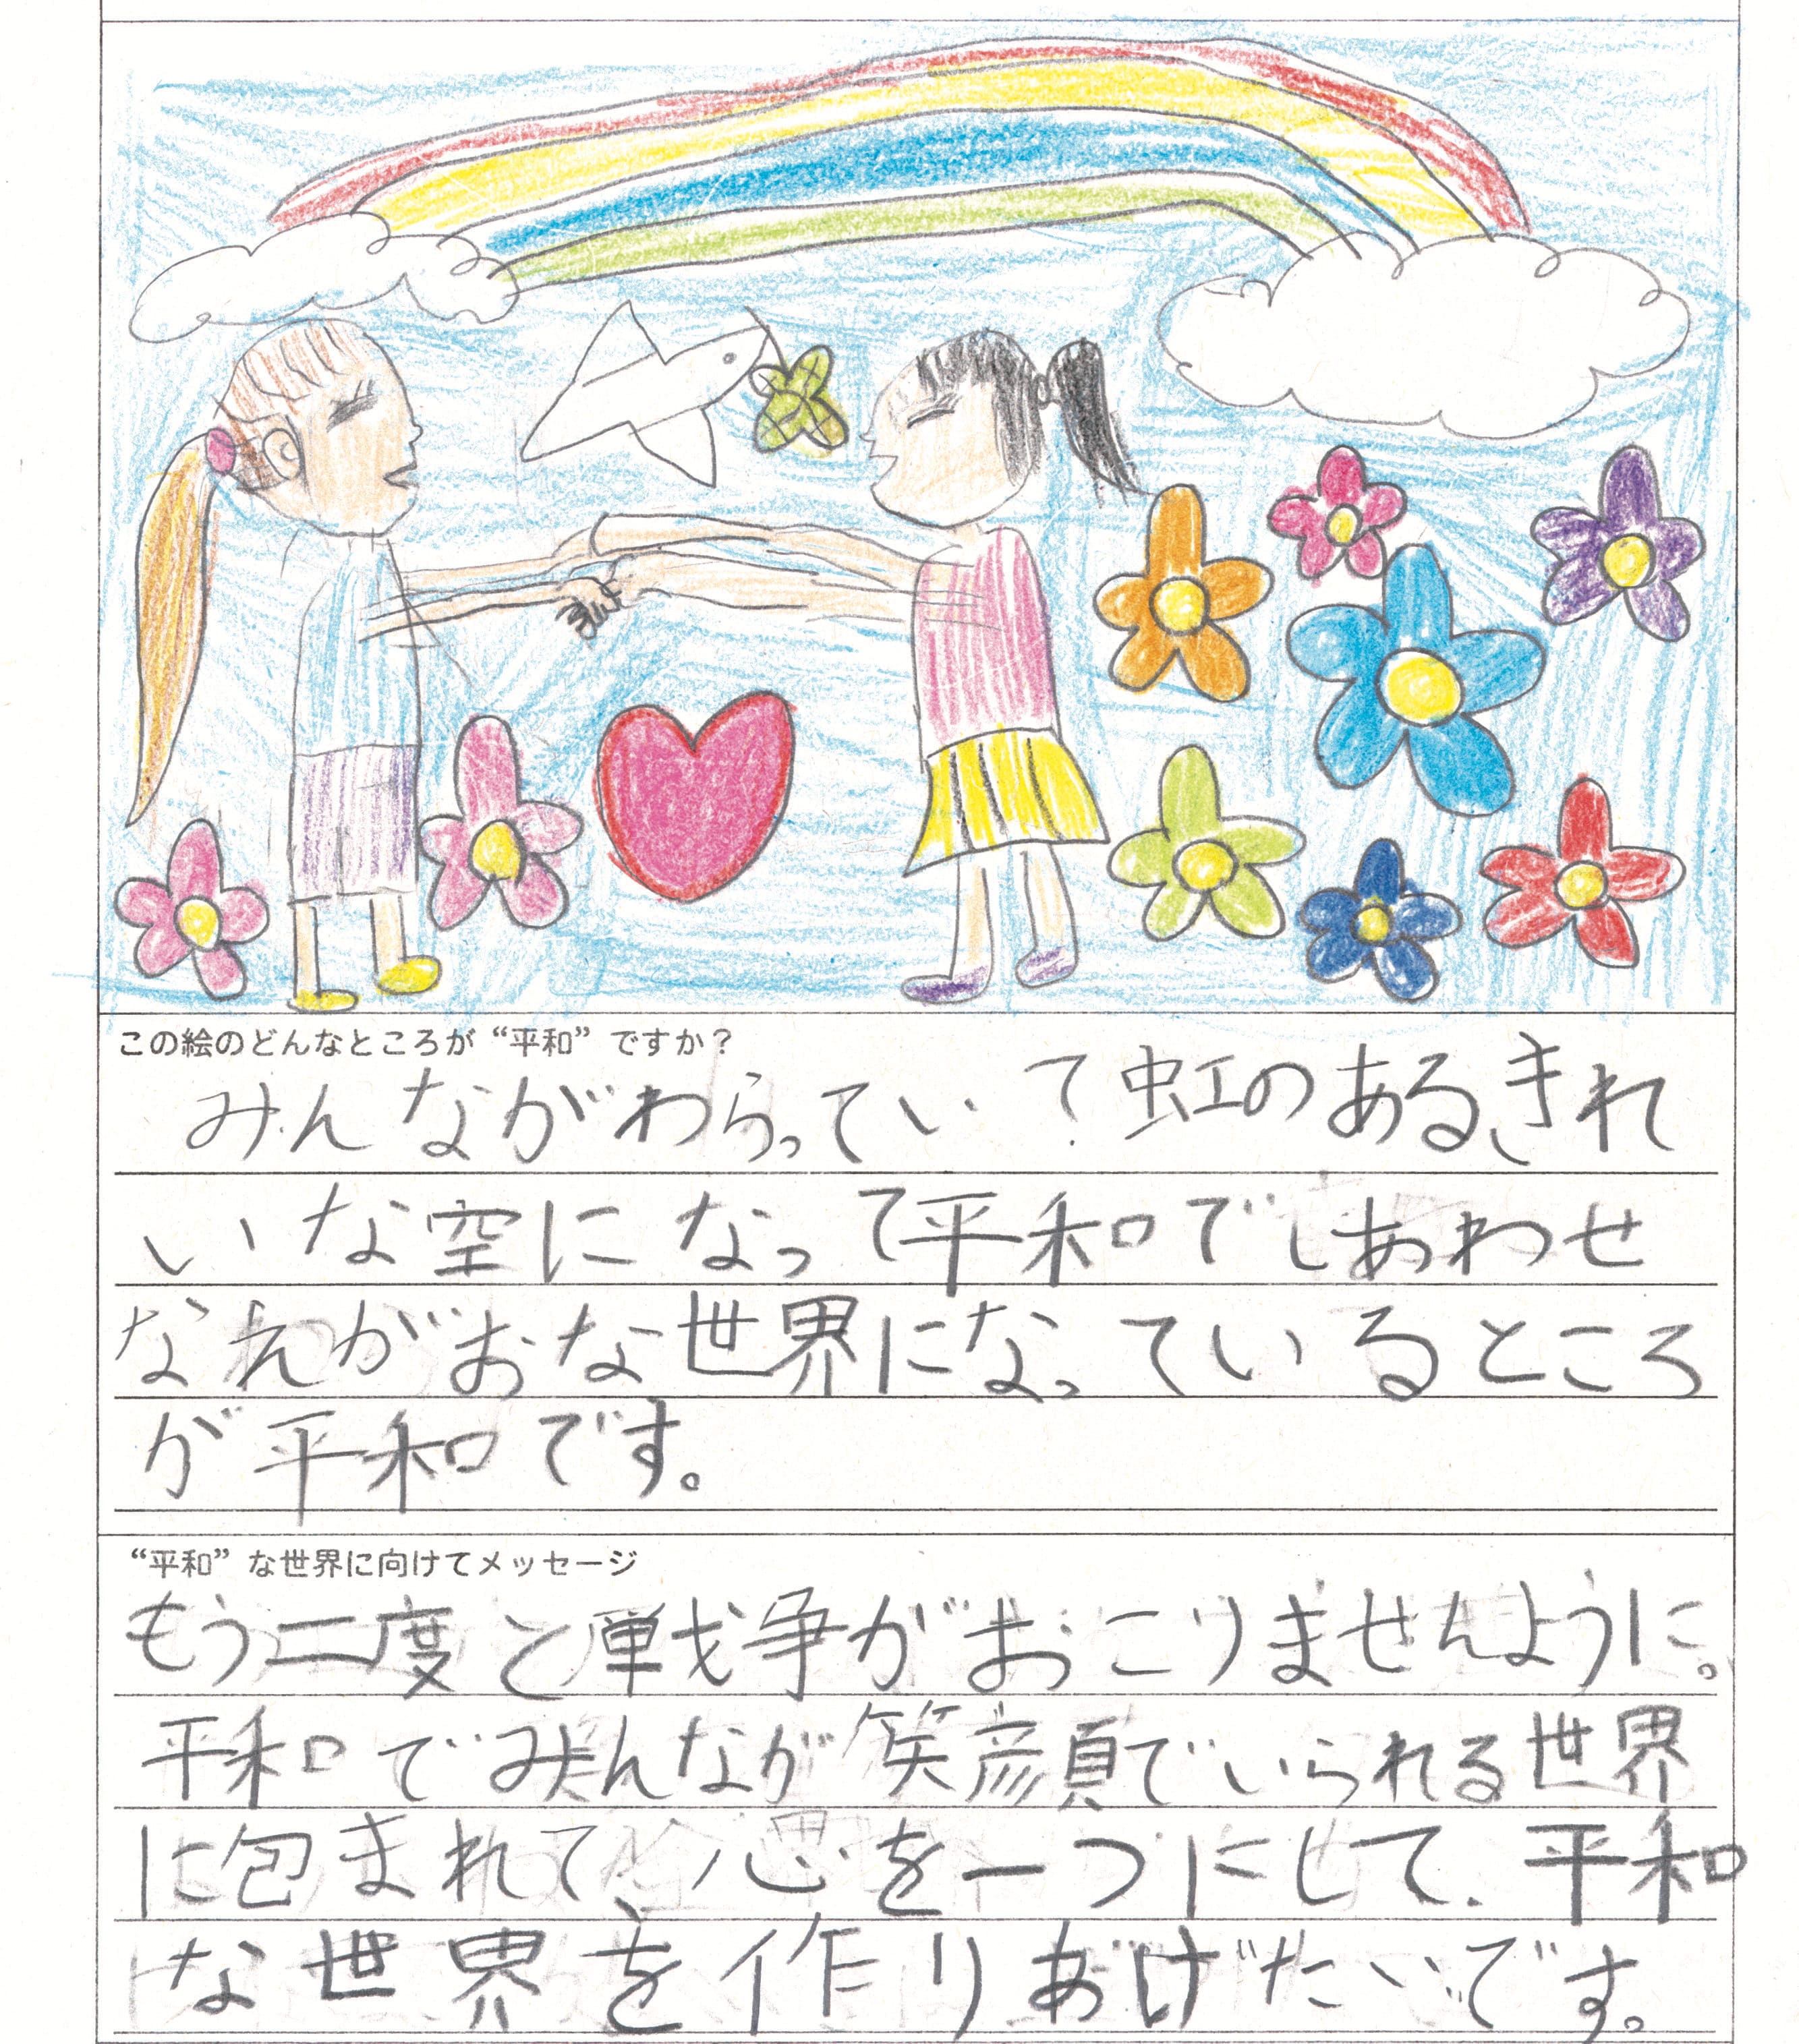 この絵のどんなところが“平和”ですか？
みんながわらっていて虹のあるきれ
いな空になって平和でしあわせ
なえがおな世界になっているところ
が平和です。
“平和”な世界に向けてメッセージ
もう二度と戦争がおこりませんように。
平和でみんなが笑顔でいられる世界
に包まれて、心を一つにして、平和
な世界を作りあげたいです。